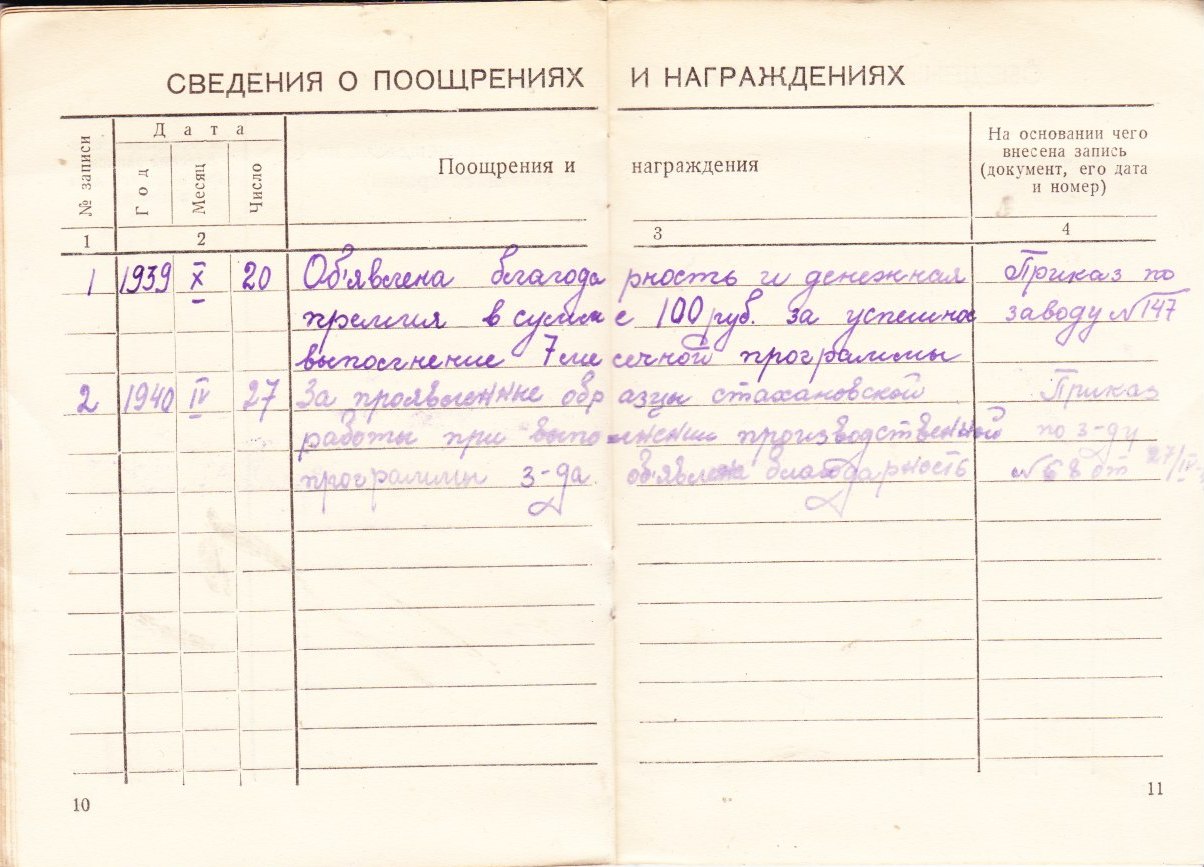 СВЕДЕНИЯ О ПООЩРЕНИЯХ И НАГРАЖДЕНИЯХ
№ записи
Дата
Год
Месяц
Число
Поощрения и награждения
На основании чего
внесена запись
(документ, его дата
и номер)
1 2 3 4
1 1939 X 20 Об'явлена благодарность и денежная Приказ по
премия в сумме 100 руб. за успешное заводу №147
выполнение 7 месячной программы
2 1940 IV 27 За проявленные образцы стахановской Приказ
работы при выполнении производственной по з-ду
программы з-да об'явлена благодарность №68 от 27/IV
10 11